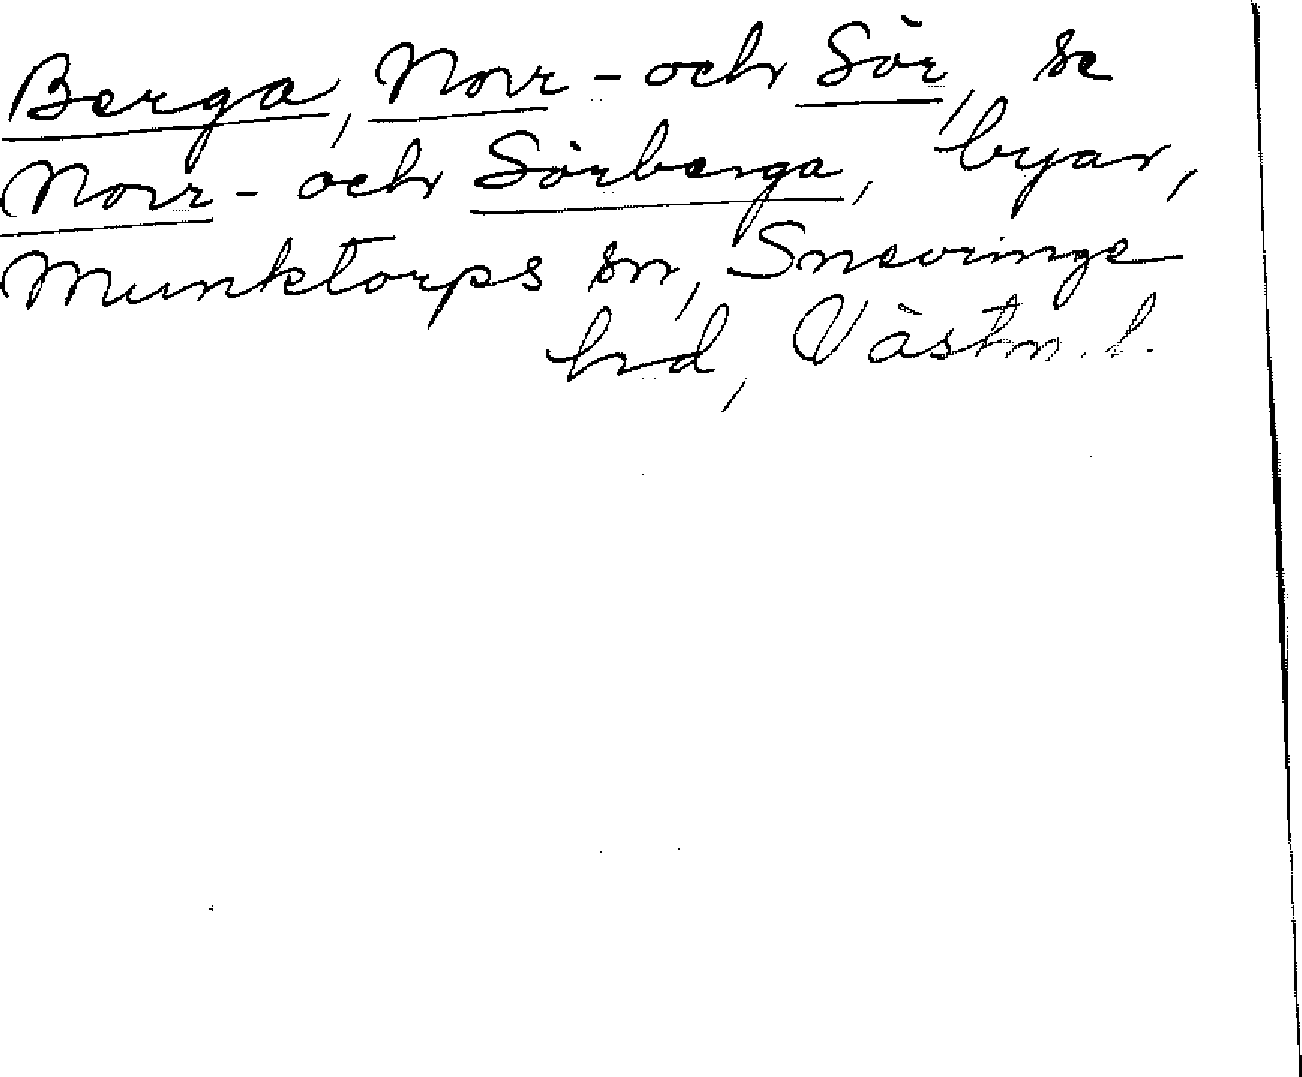 Berga, Norr- och Sör, se
Norr- och Sörberga, byar,
Munktorps sn, Snevringe
hd, Västm. l.